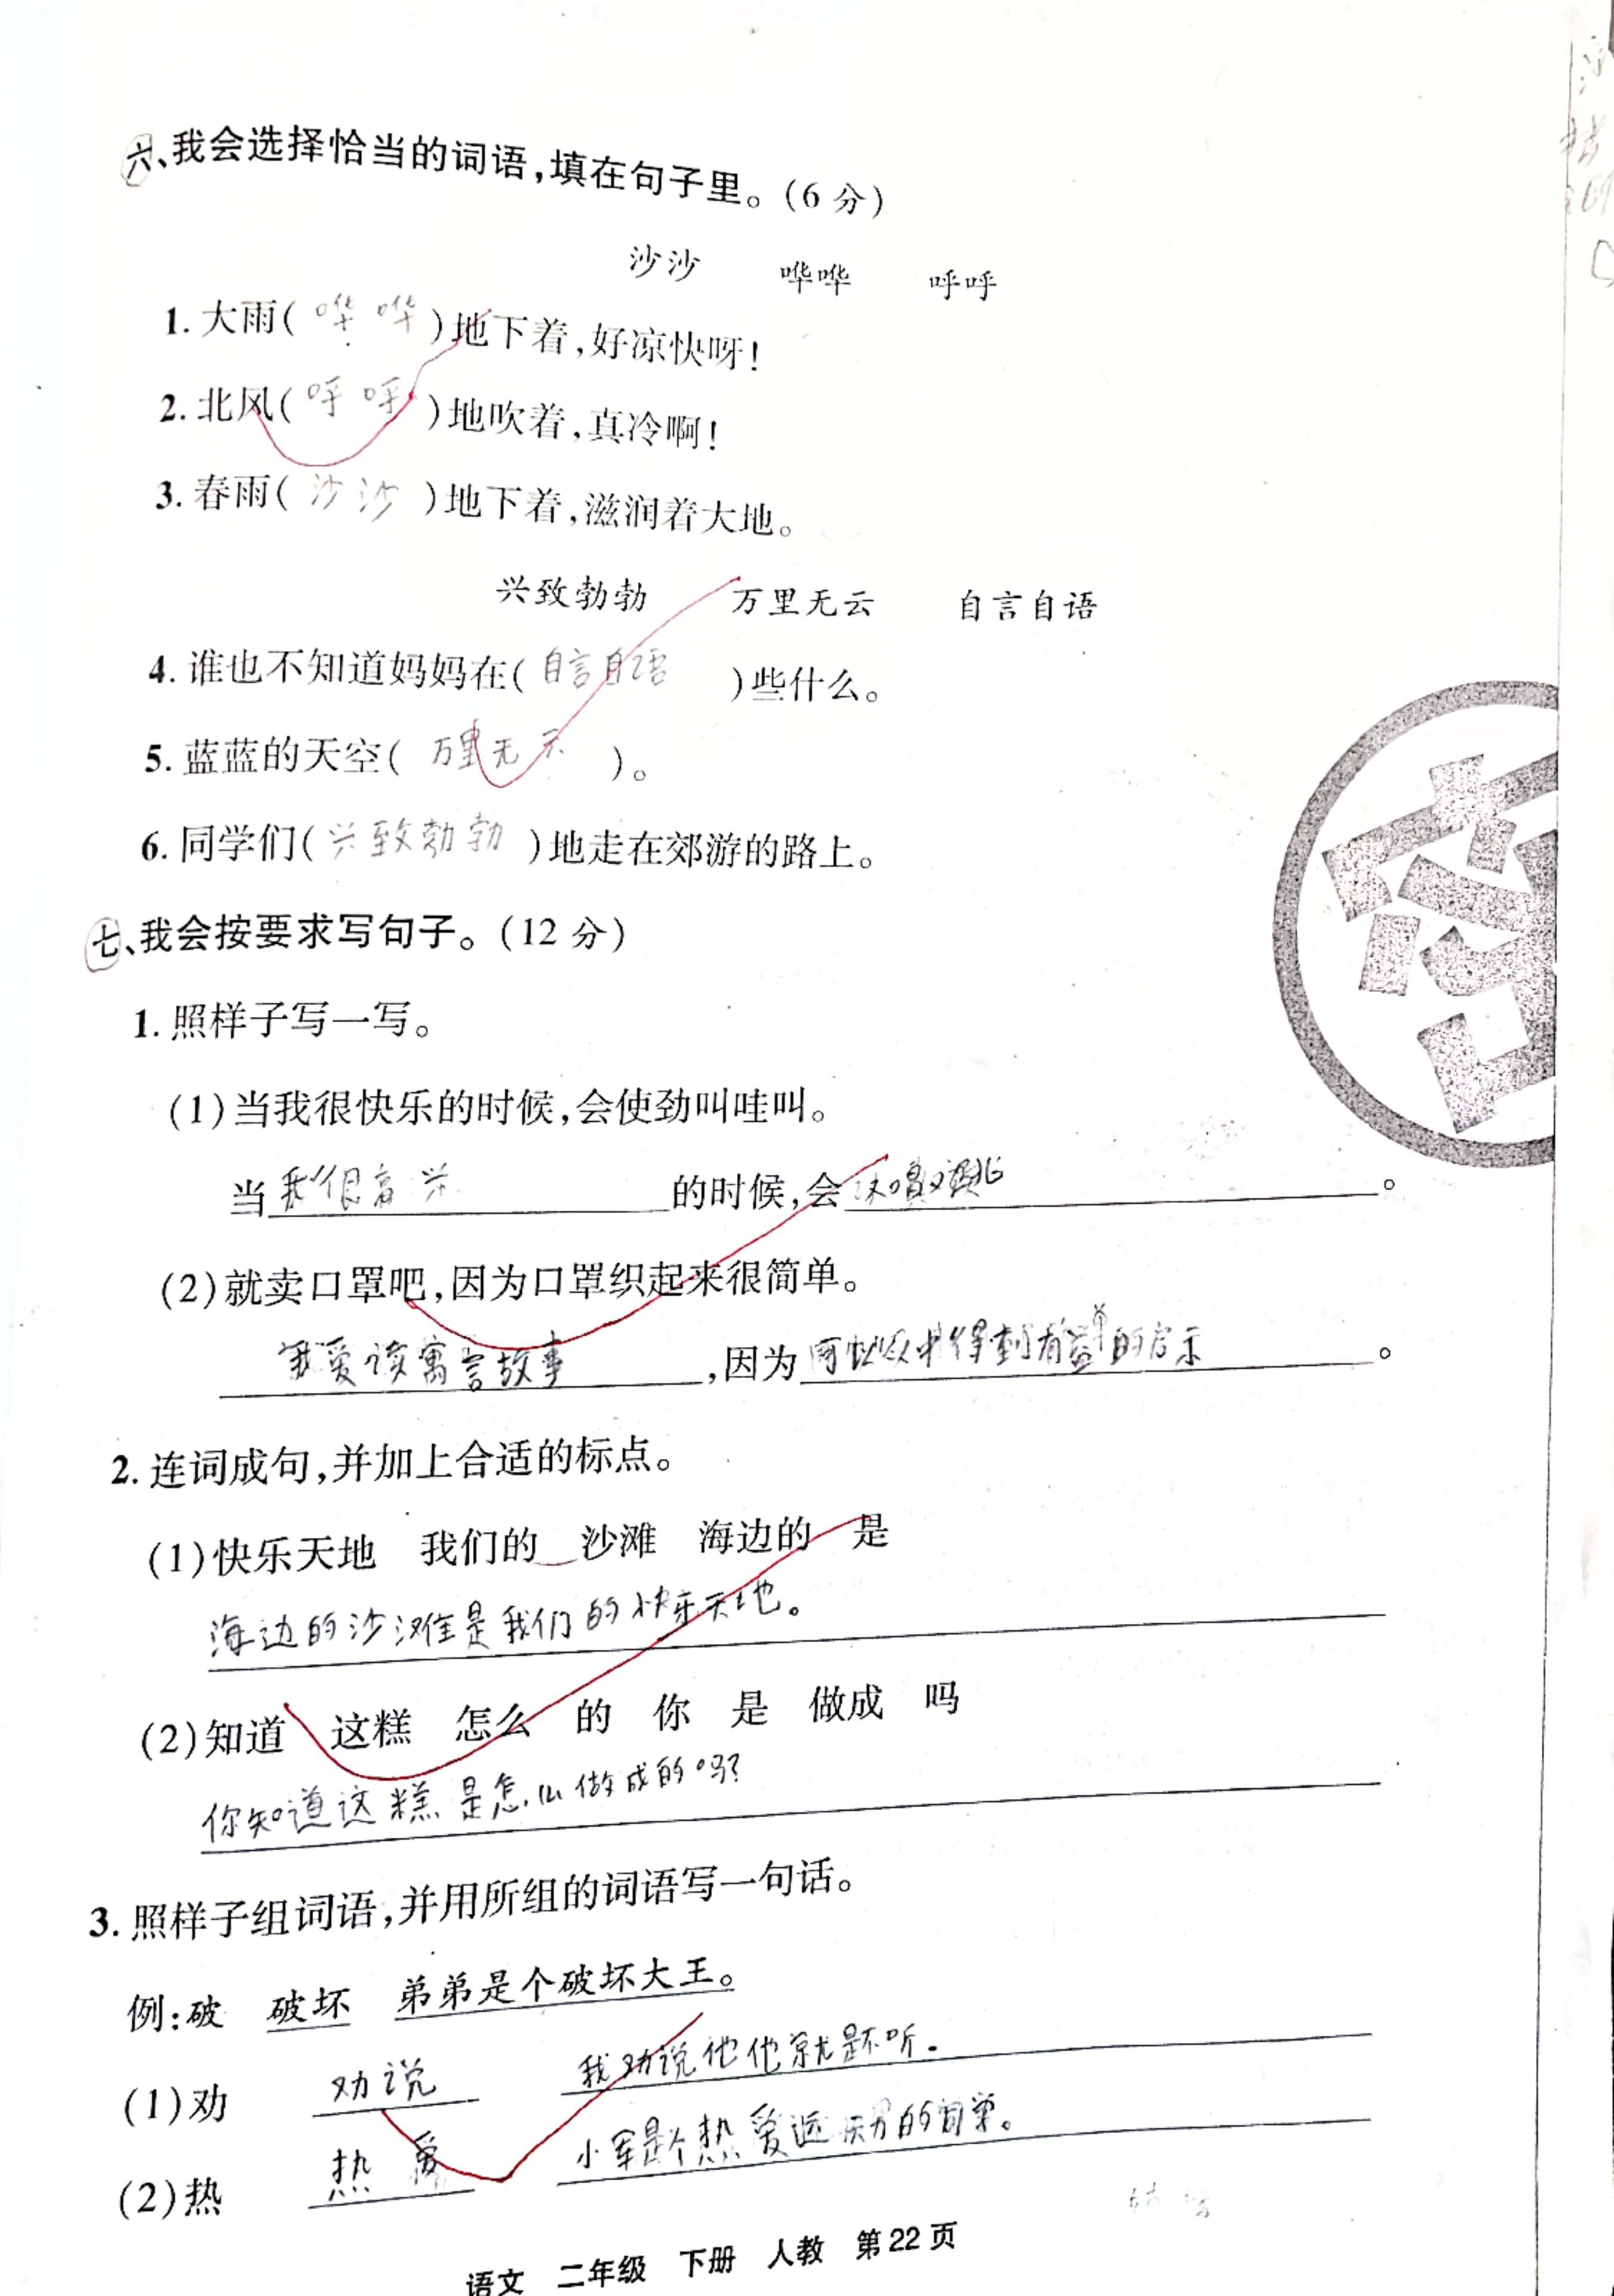 六、我会选择恰当的词语,填在句子里。(6 分)
沙沙 哗哗 呼呼
1. 大雨(哗哗)地下着,好凉快呀!
2. 北风(呼呼)地吹着,真冷啊!
3. 春雨(沙沙)地下着,滋润着大地。
兴致勃勃 万里无云 自言自语
4. 谁也不知道妈妈在(自言自语)些什么。
5. 蓝蓝的天空(万里无云)。
6. 同学们(兴致勃勃)地走在郊游的路上。
七、我会按要求写句子。(12 分)
1. 照样子写一写。
(1)当我很快乐的时候,会使劲叫哇叫。
当我很高兴的时候,会。
(2)就卖口罩吧,因为口罩织起来很简单。
我爱读寓言故事,因为可以从中得到有益的启示。
2. 连词成句,并加上合适的标点。
(1)快乐天地 我们的 沙滩 海边的 是
海边的沙滩是我们的快乐天地。
(2)知道 这糕 怎么 的 你 是 做成 吗
你知道这糕是怎么做成的吗?
3. 照样子组词语,并用所组的词语写一句话。
例:破 破坏 弟弟是个破坏大王。
(1)劝 劝说 我劝说他他就是不听.
(2)热 热爱 小军是个热爱运动的同学。
语文 二年级 下册 人教 第22页